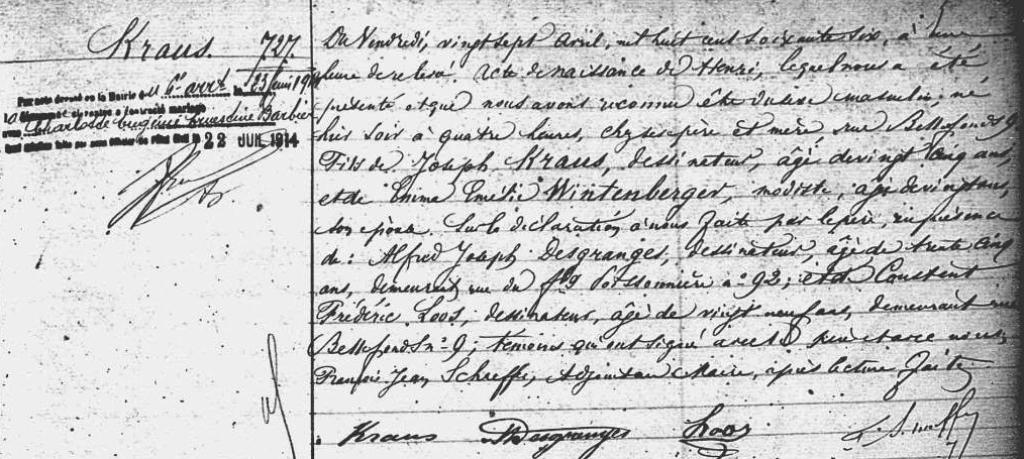 Kraus. 727
Par acte dressé en la Mairie du 6e arrt le 23 juin 1914
a contracté mariage
avec Charlotte Eugénie Barbier
22 JUIL 1914
Du Vendredi, vingt sept avril, mil huit cent soixante six, à une
heure de relevé. Acte de naissance de Henri, lequel nous a été
présenté et que nous avons reconnu être du sexe masculin; né
hier soir à quatre heures, chez ses père et mère rue Bellefond 9
Fils de Joseph Kraus, dessinateur, âgé de vingt cinq ans,
et de Emélie Wintenberger, modiste, âgée de vingt ans,
son épouse. Sur la déclaration à nous faite par le père, en présence
de: Alfred Joseph Desgranges, dessinateur, âgé de trente cinq
ans, demeurant rue du fbg Poissonnière no 92; et de Constent
Frédéric Loos, dessinateur, âgé de vingt neuf ans, demeurant rue
Bellefond no 9; témoins qui ont signé avec le père et avec nous,
François Jean Adjoint au Maire, après lecture faite
Kraus Desgranges Loos